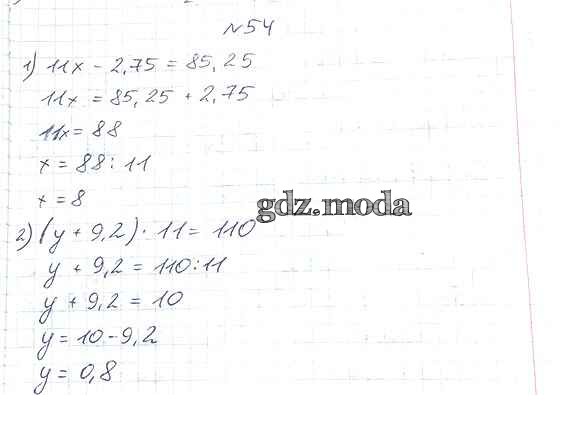 №54
1) 11x - 2,75 = 85,25
11x = 85,25 + 2,75
11x = 88
x = 88 : 11
x = 8
gdz.moda
2) (y + 9,2) · 11 = 110
y + 9,2 = 110 : 11
y + 9,2 = 10
y = 10 - 9,2
y = 0,8